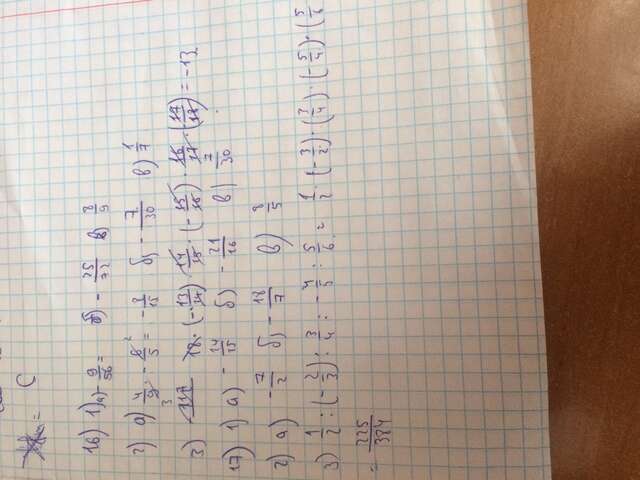 = C
16) 1) а) - 9/56 = б) - 25/72 в) 8/9
2) а) 4/9 - 6/5 = - 8/15 б) - 7/30 в) 1/7
3) 117 18 · (- 13/14) · 14/15 · (- 15/16) · 16/17 · (- 17/18) = -13
17) 1) а) - 14/15 б) - 21/16 в) 7/30
2) а) - 7/2 б) - 18/7 в) 8/5
3) 1/2 : (- 2/3) : 3/4 : - 4/5 : 5/6 = 1/2 · (- 3/2) · (3/4) · (- 5/4) · (5/6
= 225/384